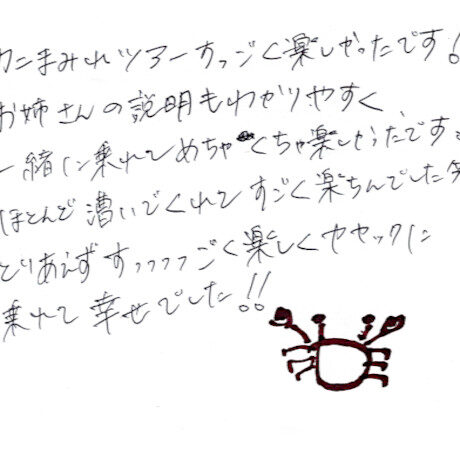 カニまみれツアーすっごく楽しかったです!
お姉さんの説明もわかりやすく
一緒に乗れてめちゃくちゃ楽しかったです。
ほとんど漕いでくれてすごく楽ちんでした笑
とりあえずすっっっっごく楽しくカヤックに
乗れて幸せでした!!